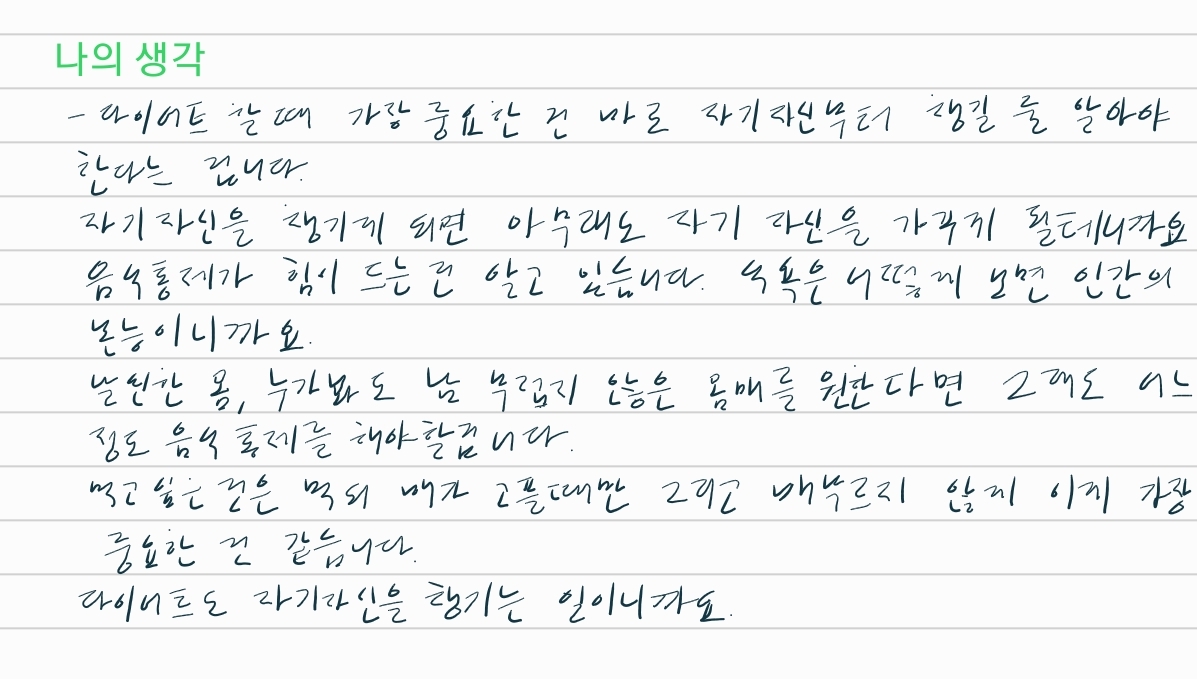 나의 생각
- 다이어트 할 때 가장 중요한 건 바로 자기자신부터 챙길 줄 알아야
한다는 겁니다.
자기자신을 챙기게 되면 아무래도 자기 자신을 가꾸게 될테니까요
음식통제가 힘이 드는건 알고 있습니다. 식욕은 어떻게 보면 인간의
본능이니까요.
날씬한 몸, 누가봐도 남 부럽지 않은 몸매를 원한다면 그래도 어느
정도 음식 통제를 해야할겁니다.
먹고싶은 것은 먹되 배가 고플때만 그리고 배부르지 않게 이게 가장
중요한 건 같습니다.
다이어트도 자기자신을 챙기는 일이니까요.